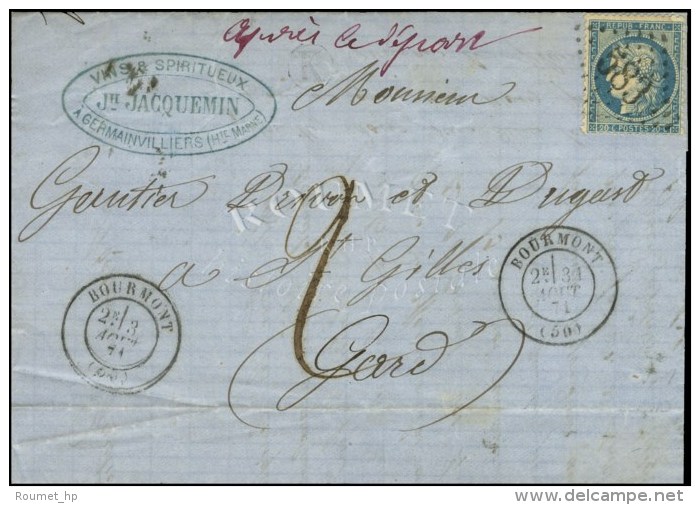 après le départ
VINS & SPIRITUEUX
JH JACQUEMIN
A GERMAINVILLIERS (HTE MARNE)
REPUB. FRANC.
20 C POSTES 20 C
583
Monsieur
Gautier et Dugast
ROUMET
a St Gilles
Gard
2
BOURMONT
2E 3
AOUT
71
(50)
BOURMONT
2E 31
AOUT
71
(50)
Roumet_hp
delcampe.net